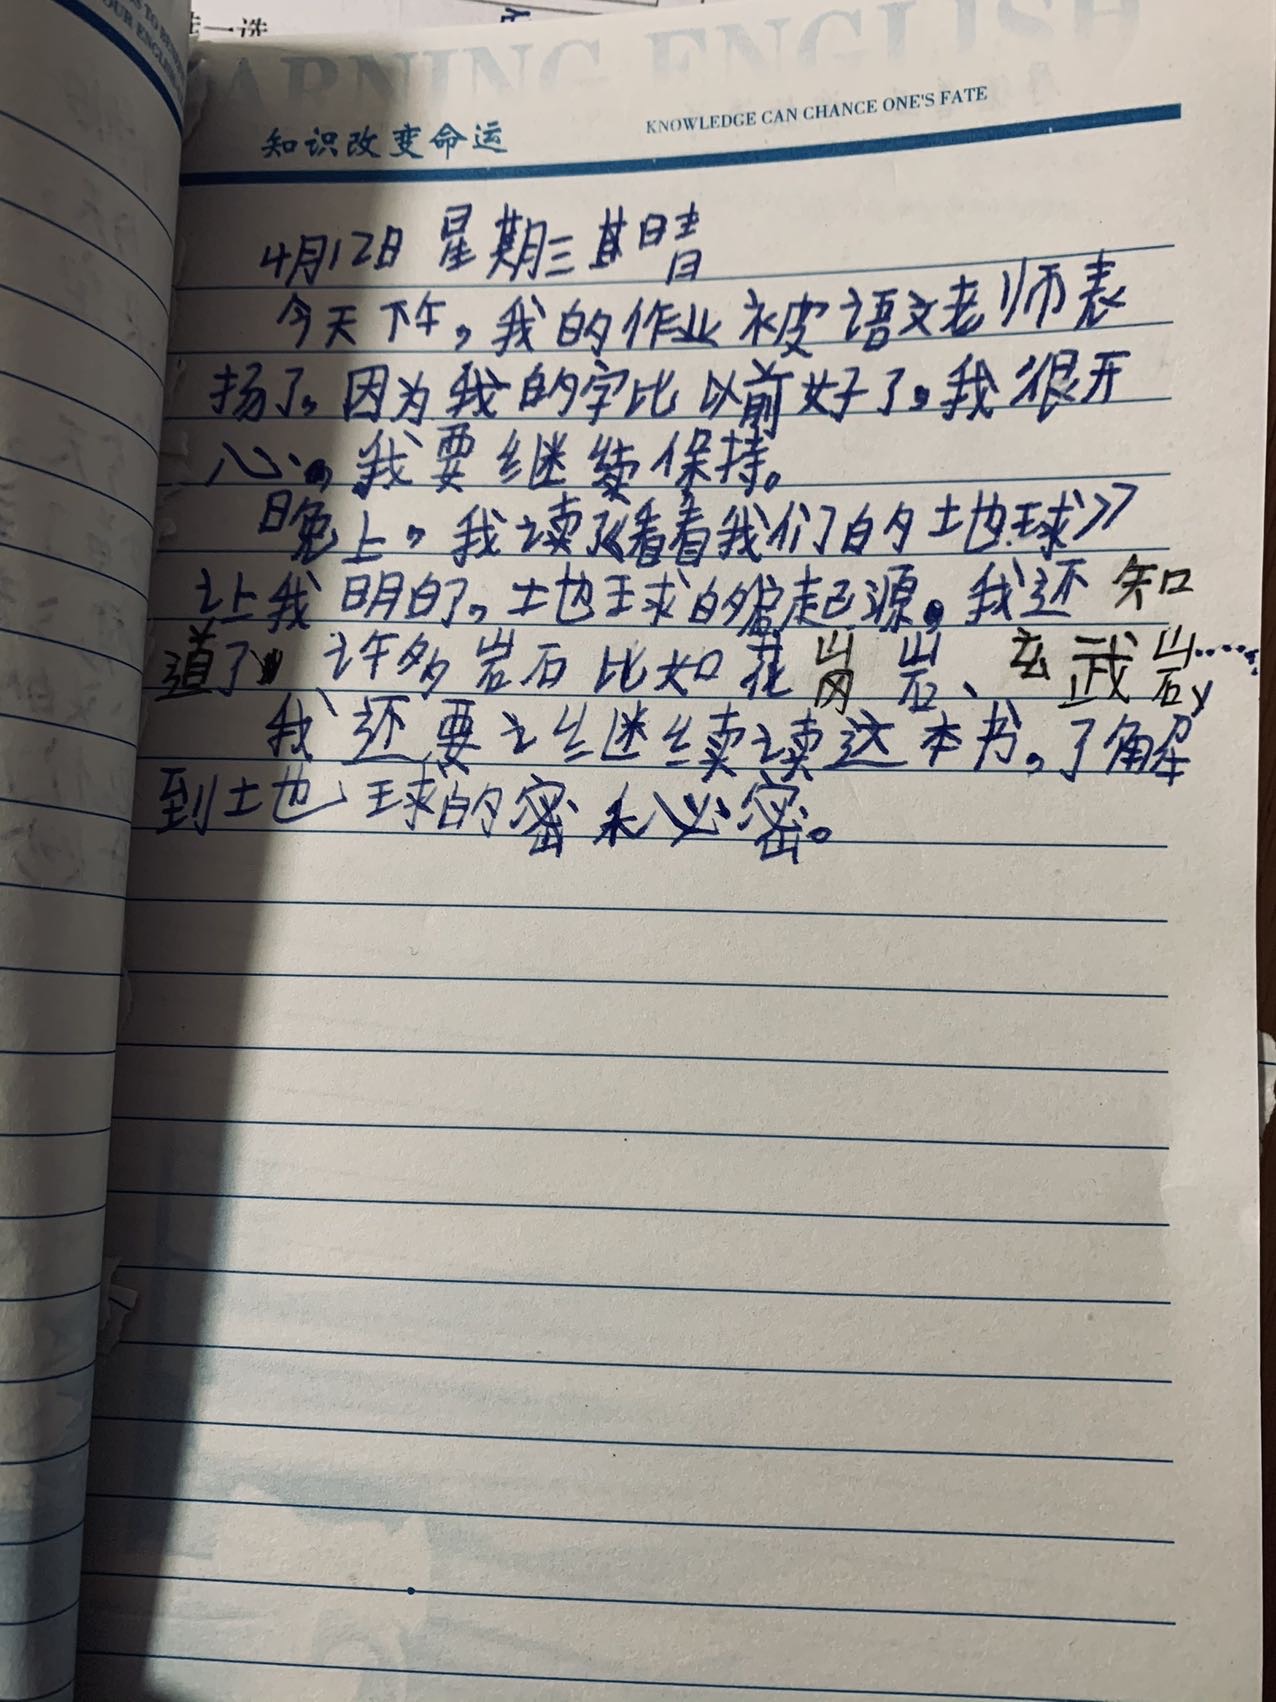 ARNING ENGLISH
KNOWLEDGE CAN CHANCE ONE'S FATE
知识改变命运
4月12日 星期三 晴
今天下午，我的作业被语文老师表
扬了。因为我的字比以前好了。我很开
心。我要继续保持。
晚上，我读了《看看我们的地球》
让我明白了，地球的起源。我还知
道了 许多岩石比如花岗岩、玄武岩……，
我还要继续读这本书。了解
到地球的密秘密。